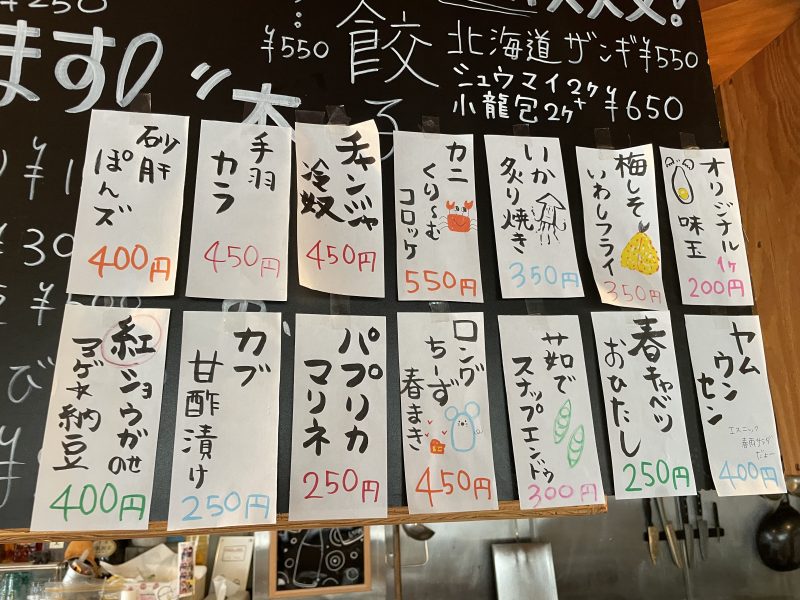 ¥250
ます
¥550
餃
北海道ザンギ¥550
シュウマイ2ケ
小龍包2ケ
¥650
オリジナル
味玉
1ケ
200円
梅しそ
いわしフライ
350円
いか
炙り焼き
350円
カニ
くり〜む
コロッケ
550円
チャンジャ
冷奴
450円
手羽
カラ
450円
砂肝
ぽんズ
400円
ヤム
ウン
セン
エスニック
春雨サラダ
だよー
400円
春キャベツ
おひたし
250円
茹で
スナップエンドゥ
300円
ロング
ちーず
春まき
450円
パプリカ
マリネ
250円
カブ
甘酢漬け
250円
紅ショウガのせ
マゲ★納豆
400円